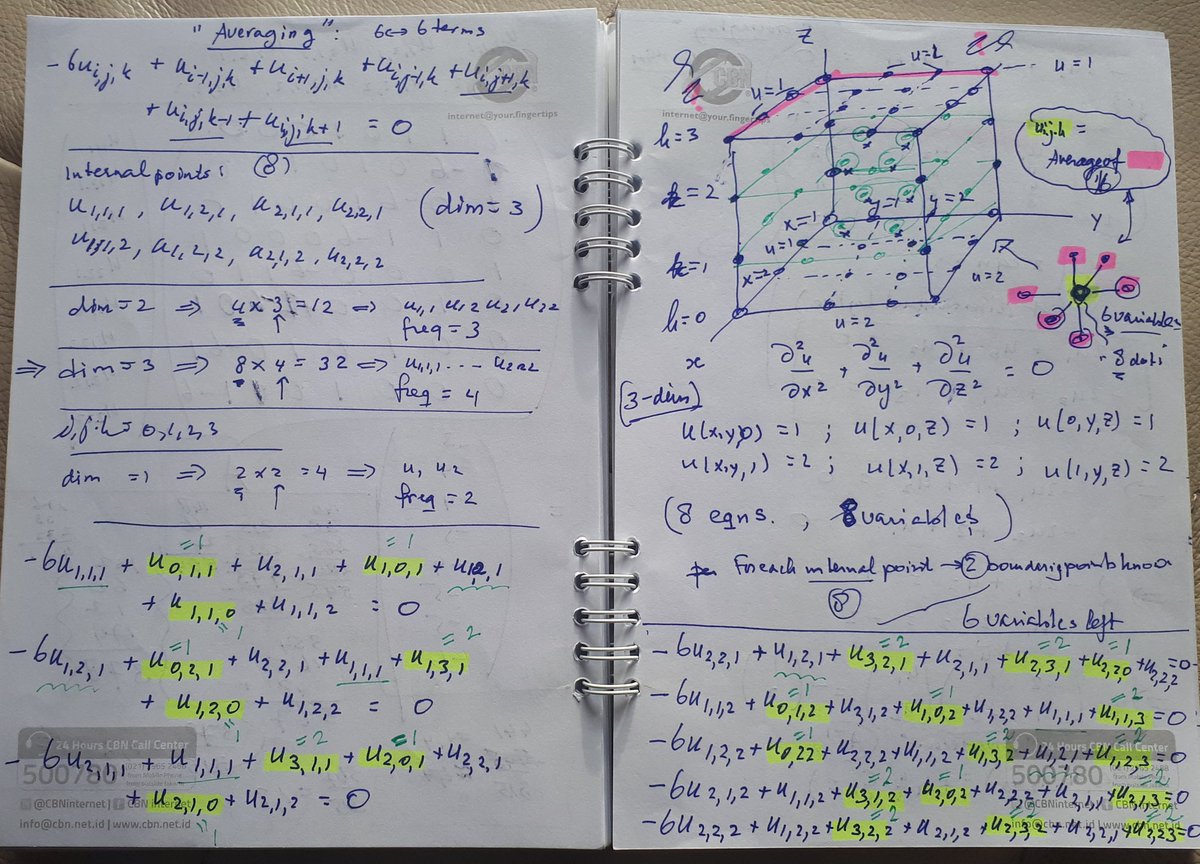 "Averaging": 6 ↔ 6 terms
-6u_{i,j,k} + u_{i-1,j,k} + u_{i+1,j,k} + u_{i,j-1,k} + u_{i,j+1,k}
+ u_{i,j,k-1} + u_{i,j,k+1} = 0
internet@your.fingertips
Internal points: (8)
u_{1,1,1}, u_{1,2,1}, u_{2,1,1}, u_{2,2,1} (dim = 3)
u_{1,1,2}, u_{1,2,2}, u_{2,1,2}, u_{2,2,2}
dim = 2 ⇒ 4 x 3 = 12 ⇒ u_{1,1} u_{1,2} u_{2,1} u_{2,2}
freq = 3
⇒ dim = 3 ⇒ 8 x 4 = 32 ⇒ u_{1,1,1} ... u_{2,2,2}
freq = 4
i,j,k = 0,1,2,3
dim = 1 ⇒ 2 x 2 = 4 ⇒ u_1 u_2
freq = 2
=1 =1
-6u_{1,1,1} + u_{0,1,1} + u_{2,1,1} + u_{1,0,1} + u_{1,2,1}
+ u_{1,1,0} + u_{1,1,2} = 0
=1
=1 =2
-6u_{1,2,1} + u_{0,2,1} + u_{2,2,1} + u_{1,1,1} + u_{1,3,1}
+ u_{1,2,0} + u_{1,2,2} = 0
=1
=2 =1
-6u_{2,1,1} + u_{1,1,1} + u_{3,1,1} + u_{2,0,1} + u_{2,2,1}
+ u_{2,1,0} + u_{2,1,2} = 0
=1
24 Hours CBN Call Center
500780
@CBNinternet | CBN internet
info@cbn.net.id | www.cbn.net.id
CBN
internet@your.fingertips
z
u=2
u=1
u=1
k=3
k=2
k=1
k=0
x=1
y=1
y=2
Y
u=1
x=2
u=2
u=2
x
u_{i,j,k} =
Average of
6
6 variables
8 dots
∂²u/∂x² + ∂²u/∂y² + ∂²u/∂z² = 0
(3-dim)
u(x,y,0) = 1 ; u(x,0,z) = 1 ; u(0,y,z) = 1
u(x,y,1) = 2 ; u(x,1,z) = 2 ; u(1,y,z) = 2
(8 eqns. , 8 variables)
For each internal point → 2 points
8
6 variables left
=2 =2 =1
-6u_{2,2,1} + u_{1,2,1} + u_{3,2,1} + u_{2,1,1} + u_{2,3,1} + u_{2,2,0} + u_{2,2,2} = 0
=1 =1 =2
-6u_{1,1,2} + u_{0,1,2} + u_{2,1,2} + u_{1,0,2} + u_{1,2,2} + u_{1,1,1} + u_{1,1,3} = 0
=1 =2 =2
-6u_{1,2,2} + u_{0,2,2} + u_{2,2,2} + u_{1,1,2} + u_{1,3,2} + u_{1,2,1} + u_{1,2,3} = 0
=2 =1 =2
-6u_{2,1,2} + u_{1,1,2} + u_{3,1,2} + u_{2,0,2} + u_{2,2,2} + u_{2,1,1} + u_{2,1,3} = 0
=2 =2 =2
-6u_{2,2,2} + u_{1,2,2} + u_{3,2,2} + u_{2,1,2} + u_{2,3,2} + u_{2,2,1} + u_{2,2,3} = 0
24 Hours CBN Call Center
500780
CBNinternet
info@cbn.net.id | www.cbn.net.id